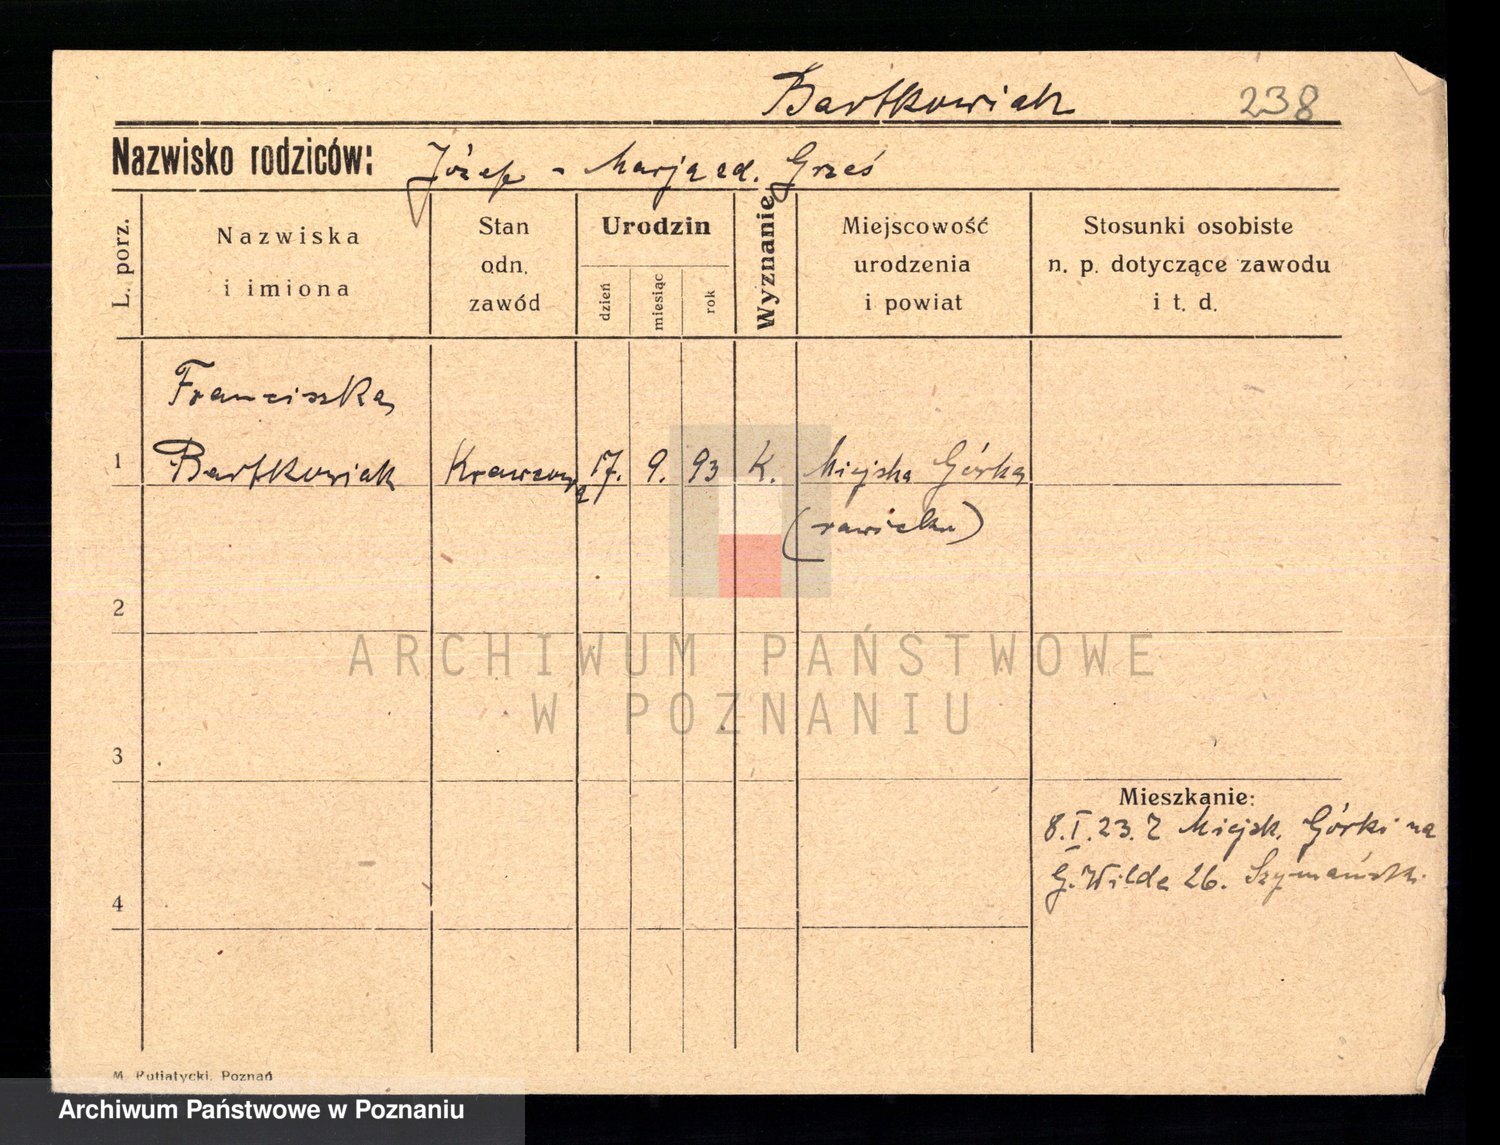 Bartkowiak 238
Nazwisko rodziców: Józef - Marja zd. Grześ
L. porz.
Nazwiska
i imiona
Stan
odn.
zawód
Urodzin
dzień
miesiąc
rok
Wyznanie
Miejscowość
urodzenia
i powiat
Stosunki osobiste
n. p. dotyczące zawodu
i t. d.
Franciszka
1 Bartkowiak Krawcowa 17. 9. 93 K. Miejska Górka
(rawicka)
2
ARCHIWUM PAŃSTWOWE
W POZNANIU
3
Mieszkanie:
8.I.23. Z Miejsk. Górki na
G. Wilda 26. Szymański.
4
M. Putiatycki. Poznań
Archiwum Państwowe w Poznaniu